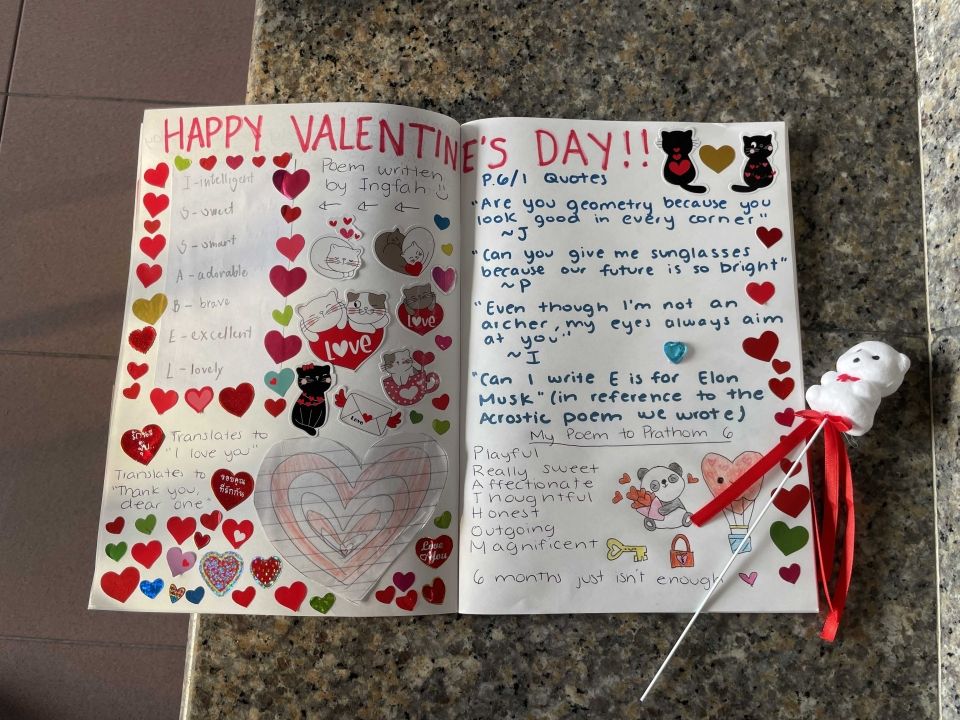 HAPPY VALENTINE'S DAY!!
I - intelligent
S - sweet
S - smart
A - adorable
B - brave
E - excellent
L - lovely
Poem written
by Ingfah :)
LOVE
LOVE
LOVE
Translates to
"I love you"
Translates to
"Thank you,
dear one"
ขอบคุณ
ที่รักกัน
Love
You
P.6/1 Quotes
"Are you geometry because you
look good in every corner"
~J
"Can you give me sunglasses
because our future is so bright"
~P
"Even though I'm not an
archer, my eyes always aim
at you"
~I
"Can I write E is for Elon
Musk" (in reference to the
Acrostic poem we wrote)
My Poem to Prathom 6
Playful
Really sweet
Affectionate
Thoughtful
Honest
Outgoing
Magnificent
6 months just isn't enough